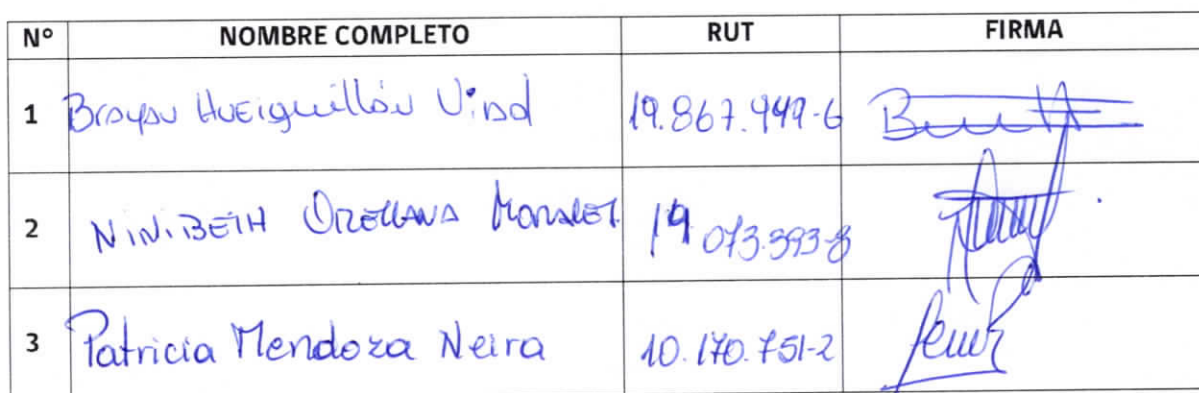 N° NOMBRE COMPLETO RUT FIRMA
1 Brayan Hueiquillán Vidal 19.867.949-6
2 NINIBETH ORELLANA MORALES 19.073.393-8
3 Patricia Mendoza Neira 10.170.751-2